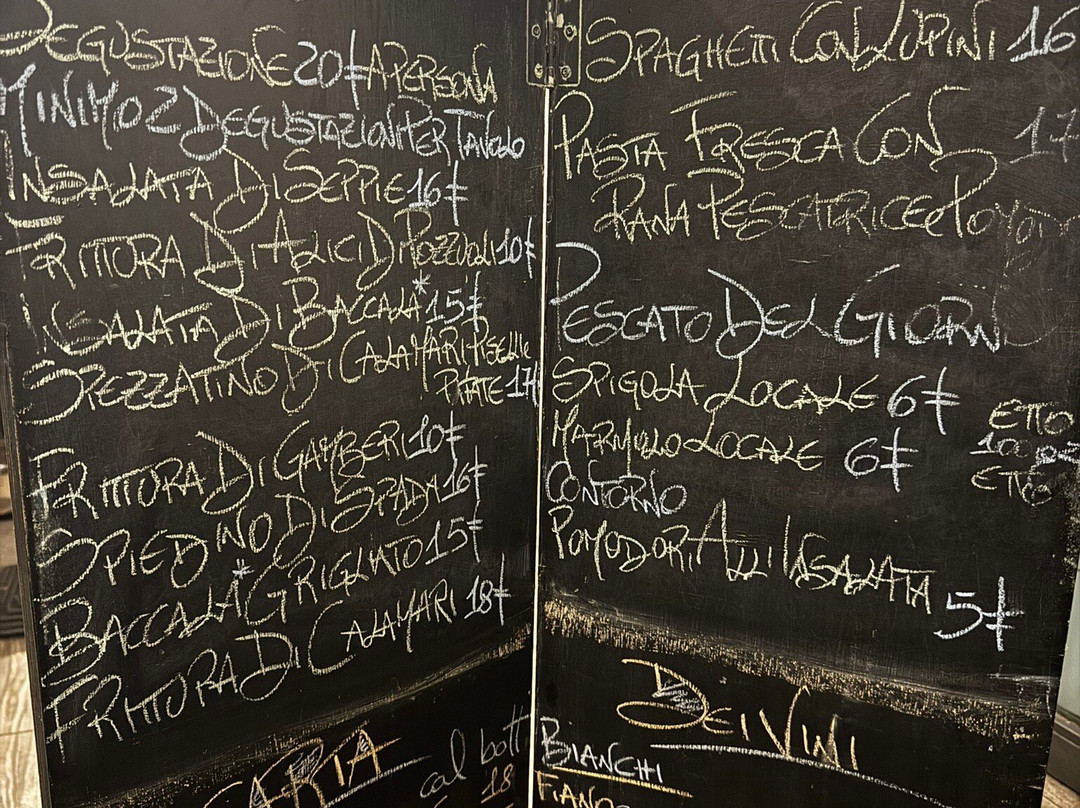 DEGUSTAZIONE 20€ A PERSONA
MINIMO 2 DEGUSTAZIONI PER TAVOLO
INSALATA DI SEPPIE 16€
FRITTURA DI ALICI DI POZZUOLI 10€
INSALATA DI BACCALA* 15€
SPEZZATINO DI CALAMARI PISELLI e
PATATE 17€
FRITTURA DI GAMBERI 10€
SPIEDINO DI SPADA 16€
BACCALA* GRIGLIATO 15€
FRITTURA DI CALAMARI 18€
CARTA
cal bott
18
SPAGHETTI CON LUPINI 16
PASTA FRESCA CON 17
RANA PESCATRICE e POMODO
PESCATO DEL GIORN
SPIGOLA LOCALE 6€ ETTO
MARMULO LOCALE 6€ 100 gr
ETTO
CONTORNO
POMODORI ALL'INSALATA
5€
DEI VINI
BIANCHI
FIANO